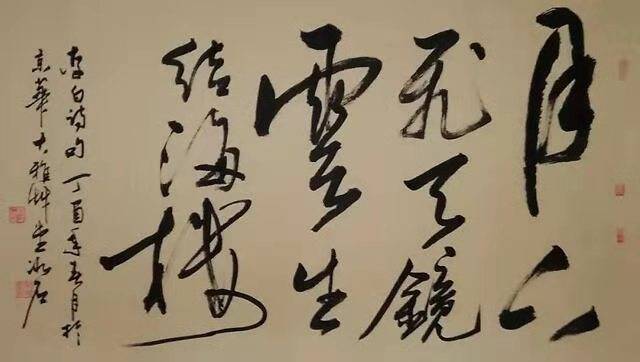 月下
飛天鏡
雲生
結海樓
李白詩句丁酉年春月於
京華大雅艸堂冰石